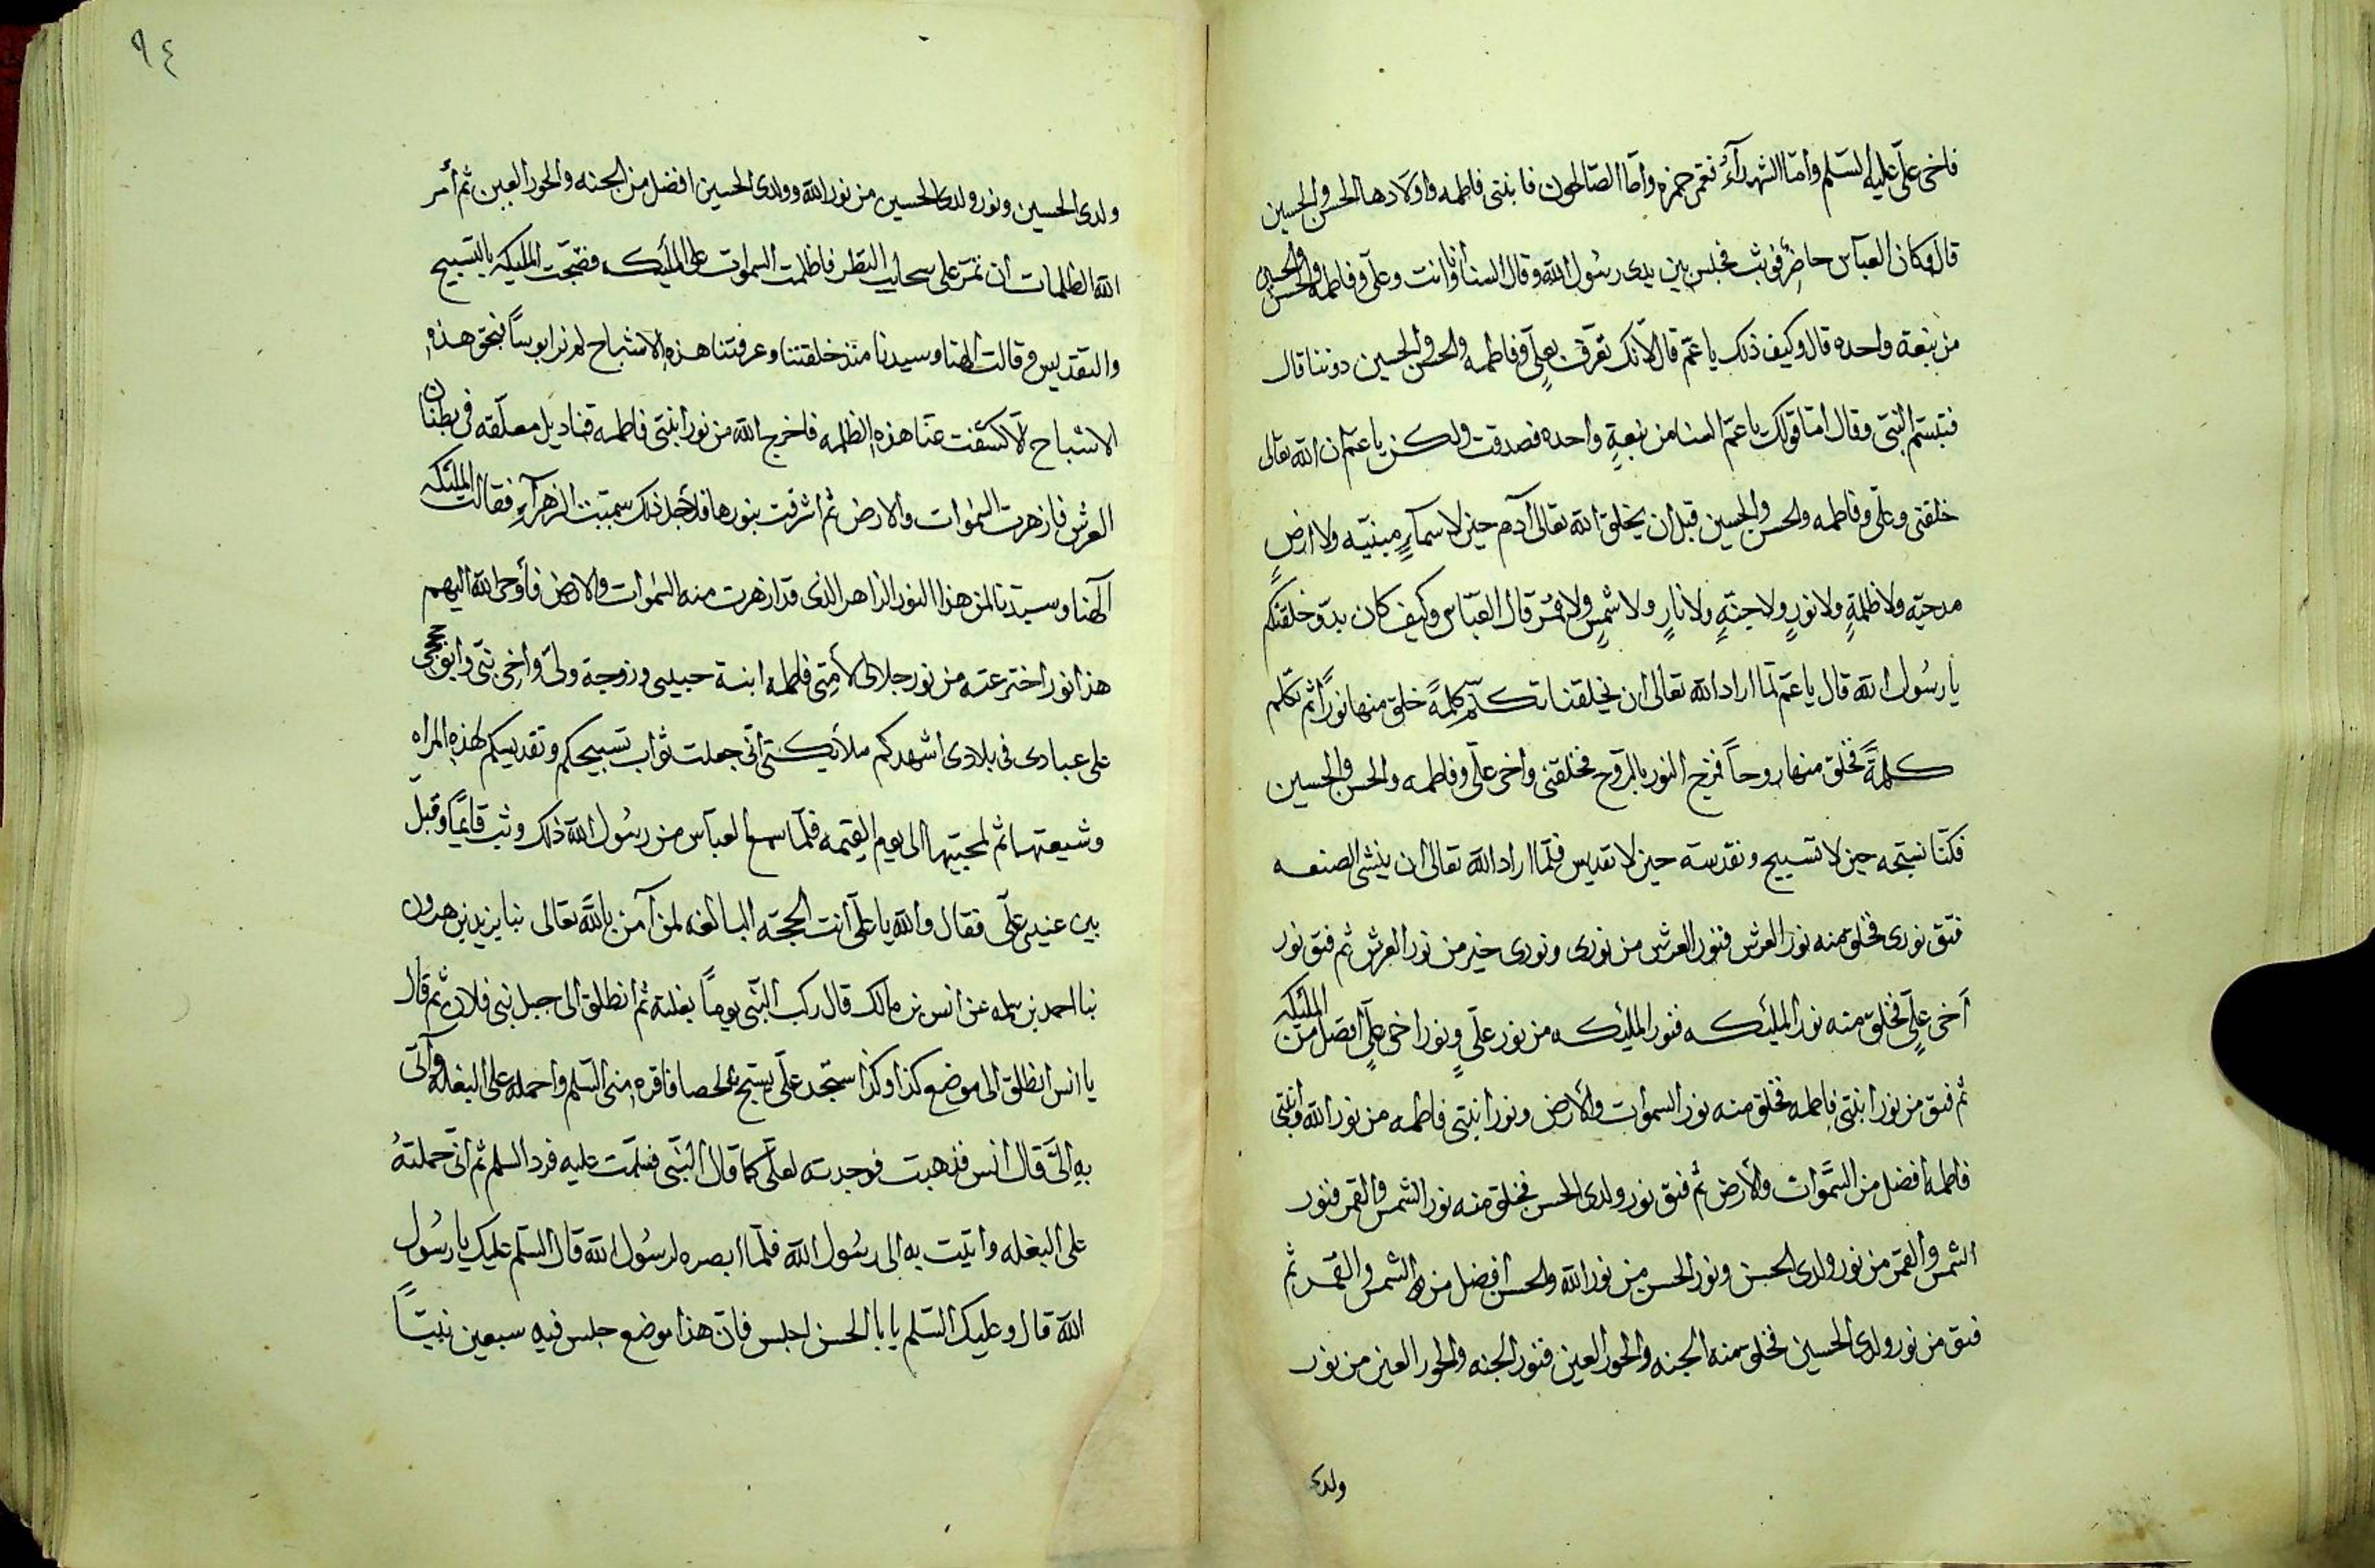 فاخى علىّ عليه السّلم وامّا الشهدآءُ فعمّى حمزه وامّا الصّالحون فابنتى فاطمه واولادها الحسن والحسين
قال وكان العباس حاضرٌ فوثب فجلس بين يدى رسُول الله وقال السنا انا وانت وعلى وفاطمه والحسن والحسين
من نبعة واحده قال وكيف ذلك يا عمّ قال لانّك تعرّف بعلىٍّ وفاطمه والحسن والحسين دوننا قال
فتبسّم النبىّ وقال امّا قولك يا عمّ السنا من نبعةٍ واحده فصدقت ولكن يا عمّ ان الله تعالى
خلقنى وعلىّ وفاطمه والحسن والحسين قبل ان يخلق الله تعالى آدم حين لا سمآءٍ مبنيّه ولا ارضٍ
مدحيّه ولا ظلمةٍ ولا نورٍ ولا جنّةٍ ولا نارٍ ولا شمسٍ ولا قمرٍ قال العبّاس وكيف كان بدؤ خلقكم
يا رسُول الله قال يا عمّ لمّا اراد الله تعالى ان يخلقنا تكلّم كلمةً خلق منها نوراً ثم تكلم
كلمةً فخلق منها روحاً فمزج النور بالروح فخلقنى واخى علىّ وفاطمه والحسن والحسين
فكنّا نسبّحه حين لا تسبيح ونقدسه حين لا تقديس فلمّا اراد الله تعالى ان ينشئ الصنعه
فتق نورى فخلق منه نور العرش فنور العرش من نورى ونورى خير من نور العرش ثم فتق نور
اخى علىٍّ فخلق منه نور المليكه فنور المليكه من نور علىٍّ ونور اخى علىٍّ افضل من المليكه
ثم فتق من نور ابنتى فاطمه فخلق منه نور السموات والأرض ونور ابنتى فاطمه من نور الله وابنتى
فاطمه افضل من السّموات والأرض ثم فتق نور ولدى الحسن فخلق منه نور الشمس والقمر فنور
الشمس والقمر من نور ولدى الحسن ونور الحسن من نور الله والحسن افضل من الشمس والقمر ثم
فتق من نور ولدى الحسين فخلق منه الجنه والحور العين فنور الجنه والحور العين من نور
ولدى
٩٤
ولدى الحسين ونور ولدى الحسين من نور الله وولدى الحسين افضل من الجنه والحور العين ثم أمر
الله الظلمات ان تمرّ على سحايب النظر فاظلمت السموات على المليكه فضجّت المليكه بالتسبيح
والتقديس وقالت الهنا وسيدنا منذ خلقتنا وعرفتنا هذه الاشباح لم نر ابوساً فبحق هذه
الاشباح الّا كشفت عنّا هذه الظلمه فاخرج الله من نور ابنتى فاطمه قناديل معلّقه فى بطنان
العرش فازهرت السموات والارض ثم اشرقت بنورها فلأجل ذلك سمّيت الزهرآء فقالت المليكه
الهنا وسيّدنا لمن هذا النور الزاهر الذى قد ازهرت منه السموات والارض فأوحى الله اليهم
هذا نور اخترعته من نور جلالى لأمتى فاطمه ابنة حبيبى وزوجة وليّى واخى نبيّى وابو حججى
على عبادى فى بلادى اشهدكم ملائكتى أنّى جعلت ثواب تسبيحكم وتقديسكم لهذه المراه
وشيعتها ثم لمحبيها الى يوم القيمه فلمّا سمع العباس من رسُول الله ذلك وثب قايمًا وقبّل
بين عينى علّى فقال والله يا علىّ انت الحجّه البالغه لمن آمن بالله تعالى نبا يزيد بن هرون
نبا احمد بن سلمه عن انس بن مالك قال ركب النّبى يوماً بغلته ثم انطلق الى جبل بنى فلان ثم قال
يا انس انطلق الى موضع كذا وكذا ستجد علّى يسبّح بالحصا فاقره منى السّلم واحمله على البغله وآتى
به الىّ قال انس فذهبت فوجدته لعلّى كما قال النبّى فسلّمت عليه فرد السلم ثم انّى حملتهُ
على البغله واتيت به الى رسُول الله فلمّا ابصره لرسُول الله قال السّلم عليك يا رسُول
الله قال وعليك السّلم يا با الحسن اجلس فانّ هذا موضع جلس فيه سبعين نبيّاً